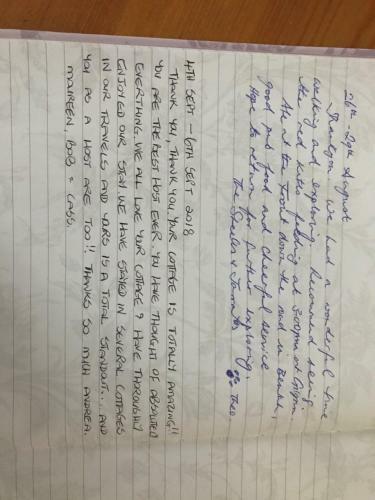 26th - 29th August
Thankyou we had a wonderful time
walking and exploring. Recommend seeing
the red kites feeding at 2.00pm at Gigrin.
the at the Food down the road is Better,
Good pub food and cheerful service
Hope to return for further exploring.
the & Theo
4TH SEPT - 6TH SEPT 2018
THANK YOU, THANK YOU YOUR COTTAGE IS TOTALLY AMAZING!!
YOU ARE THE BEST HOST EVER YOU HAVE THOUGHT OF ABSOLUTED
EVERYTHING. WE ALL LOVE YOUR COTTAGE & HAVE THROUGHLY
ENJOYED OUR STAY. WE HAVE STAYED IN SEVERAL COTTAGES
IN OUR TRAVELS AND YOURS IS A TOTAL STANDOUT... AND
YOU AS A HOST ARE TOO!! THANKS SO MUCH ANDREA.
MAUREEN, BOB & CASS.